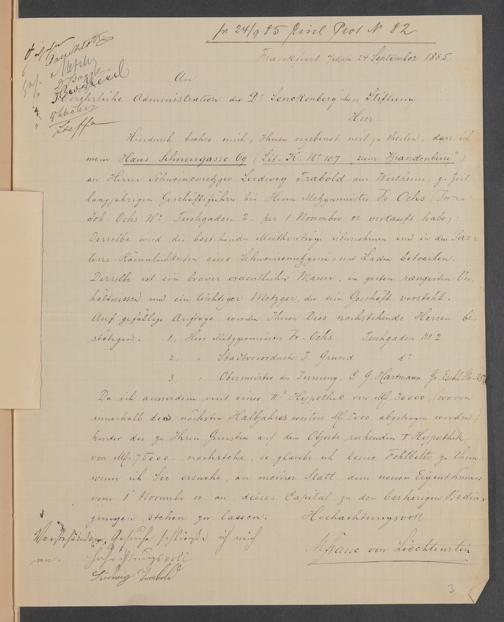 pr 24/9 85 Prot N 82
Frankfurt 24 September 1885.
An
Administration der Dr Senckenberg'schen Stiftung
Hier
Hierdurch beehre mich, Ihnen ergebenst mitzutheilen, dass ich
mein Haus Schnurgasse 69 (Lit. K. No 107 „zum Brandenburg")
an Herrn Schweinemetzger Ludwig Trabold aus Wertheim, z. Zeit
langjährigen Geschäftsführer bei Herrn Metzgermeister Fr. Ochs
Ochs We, Tuchgaden 2, per 1 November cr verkauft habe;
Derselbe wird die bestehenden Miethverträge übernehmen und in den Par-
terre Räumlichkeiten eine Schweinemetzgerei und Laden betreiben.
Derselbe ist ein braver ordentlicher Mann, in guten rangirten Ver-
hältnissen und ein tüchtiger Metzger, der sein Geschäft versteht.
Auf gefällige Anfrage werden Ihnen dies nachstehende Herren be-
stätigen. 1, Herr Metzgermeister Fr. Ochs Tuchgaden No 2
2, " J. Grund do
3 " Obermeister der Innung, G. G. Hartmann
Da ich ausserdem mit einer IIt Hypothek von Mf. 30000 (wovon
innerhalb des nächsten Halbjahres weitere Mf. 5000 abgetragen werden)
hinter der zu Ihren Gunsten auf dem Objecte ruhenden I Hypothek
von Mf. 75000 nachstehe, so glaube ich keine Fehlbitte zu thun,
wenn ich Sie ersuche, an meiner Statt dem neuen Eigenthümer
vom 1 November cr an, dieses Capital zu den bisherigen Bedin-
gungen stehen zu lassen. Hochachtungsvoll
Vorstehendem Gesuche schließe ich mich
an. Hochachtungsvoll
Ludwig Trabold
von Liechtenstein
3